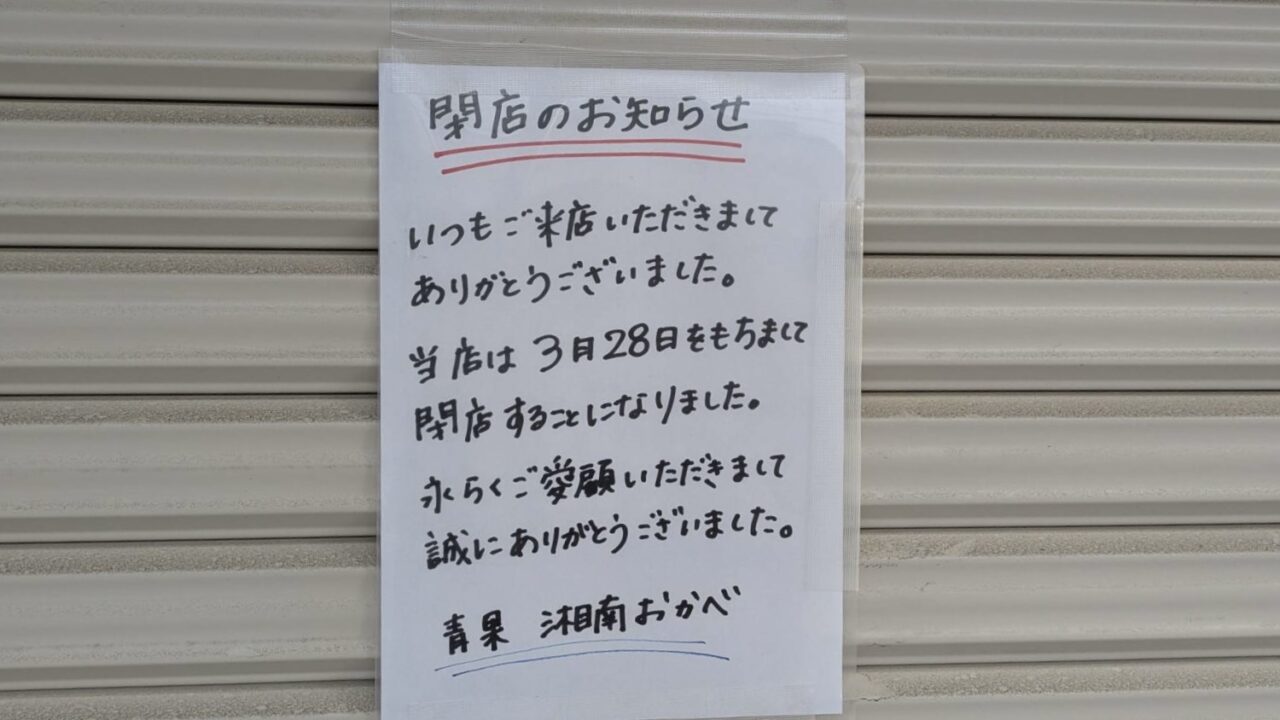 閉店のお知らせ
いつもご来店いただきまして
ありがとうございました。
当店は3月28日をもちまして
閉店することになりました。
永らくご愛顧いただきまして
誠にありがとうございました。
青果 湘南おかべ